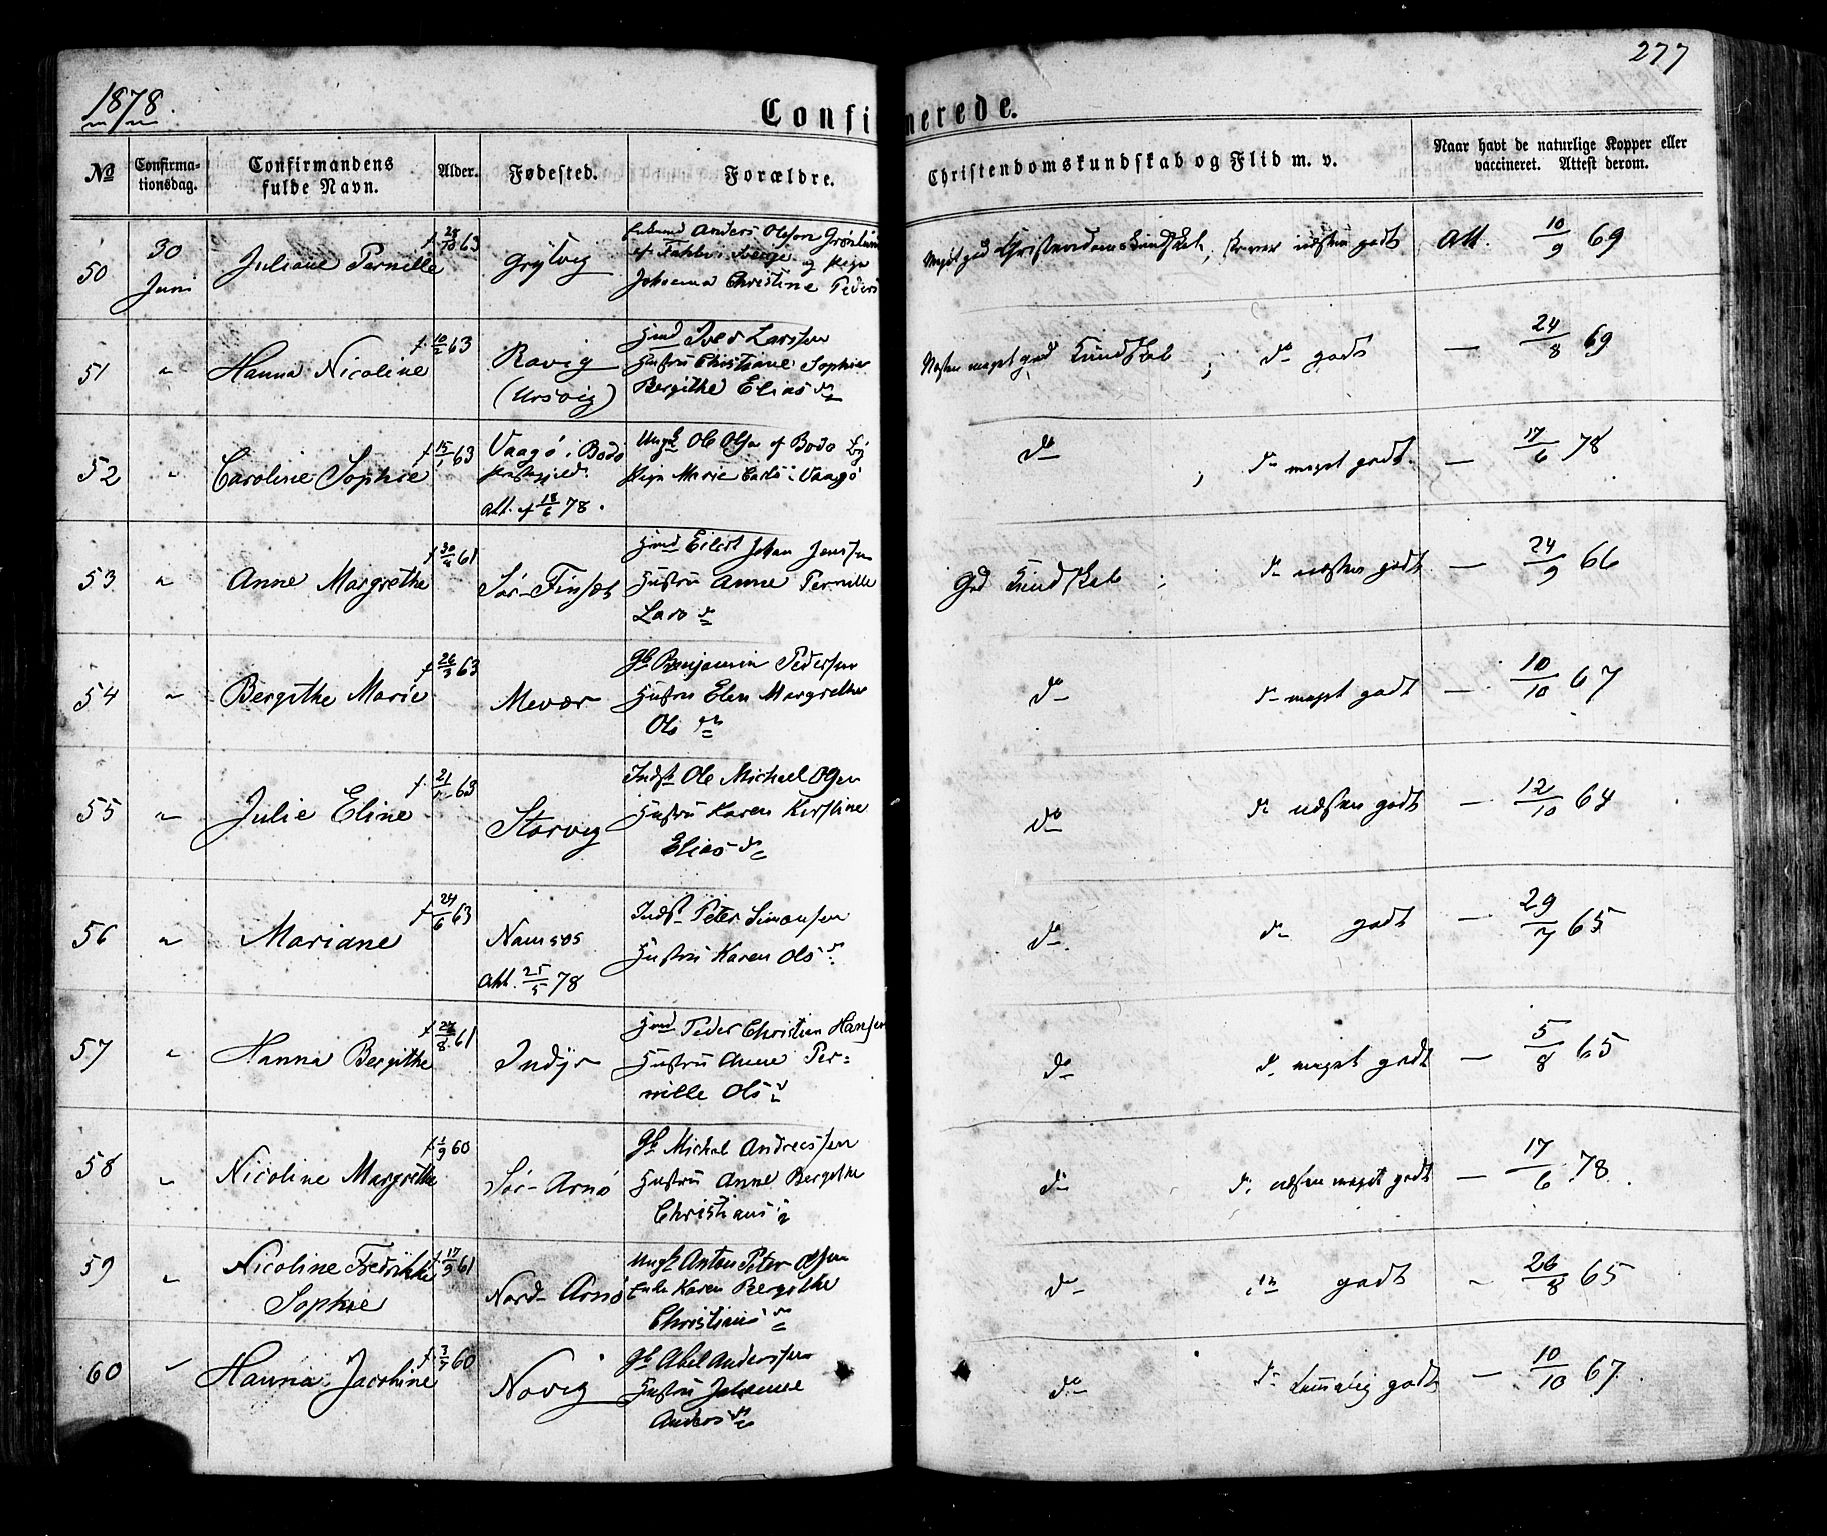 277
1878.
Confirmerede.
No
Confirma-
tionsdag.
Confirmandens
fulde Navn.
Alder.
Fødested.
Forældre.
Christendomskundskab og Flid m. v.
Naar havt de naturlige Kopper eller
vaccineret. Attest derom.
50
30
Juni
Juliane Pernille
f. 63
Grytvig
Anders Olsson
Johanna Christine
Meget god Christendomskundskab, næsten godt
Att. 10/9 69
51
"
Hanna Nicoline
f. 10/2 63
(Ursvig)
Gmd Iver Larssen
Hustru Christiane Sophie
Bergithe Elias dr
Næsten meget god Kundskab; do godt
— 24/8 69
52
"
Caroline Sophie
f. 15/1 63
Vaagø i Bodø
Præstegjeld.
Att. af 18/6 78.
Ungk Ole Olsen af Bodø
Pige Marie i Vaagø
do ; do meget godt
— 17/6 78
53
"
Anne Margrethe
f. 61
Sør-Finset
Gmd Eilert Johan Jenssen
Hustru Anne Pernille
Lars dr
God Kundskab ; do næsten godt
— 24/9 66
54
"
Bergithe Marie
f. 26/3 63
Mevær
Gb Benjamin Pedersen
Hustru Elen Margrethe
Ols dr
do do meget godt
— 10/10 67
55
"
Julie Eline
f. 63
Storvig
Indst Ole Michael Olsen
Hustru Karen Kirstine
Elias dr
do do næsten godt
— 12/10 64
56
"
Mariane
f. 24/6 63
Namsos
Att. 25/5 78
Indst Peter Simonsen
Hustru Karen Ols dr
do do godt
— 29/7 65
57
"
Hanna Bergithe
f. 61
Indyr
Gmd Peder Christian Hansen
Hustru Anne Per=
nille Ols dr
do do meget godt
— 5/8 65
58
"
Nicoline Margrethe
f. 1/9 60
Sør-Arnø
Gb Michal Andreassen
Hustru Anne Bergithe
Christians dr
do do næsten meget godt
— 17/6 78.
59
"
Nicoline Fredrikke
Sophie
f. 61
Nord-Arnø
Ungk Anton Peter Olsen
Enke Karen Bergithe
Christians dr
do do godt
" 26/8 65
60
"
Hanna Jacobine
f. 60
Novig
Gb Abel Anderssen
Hustru Johanne
Anders dr
do do godt
— 10/10 67.